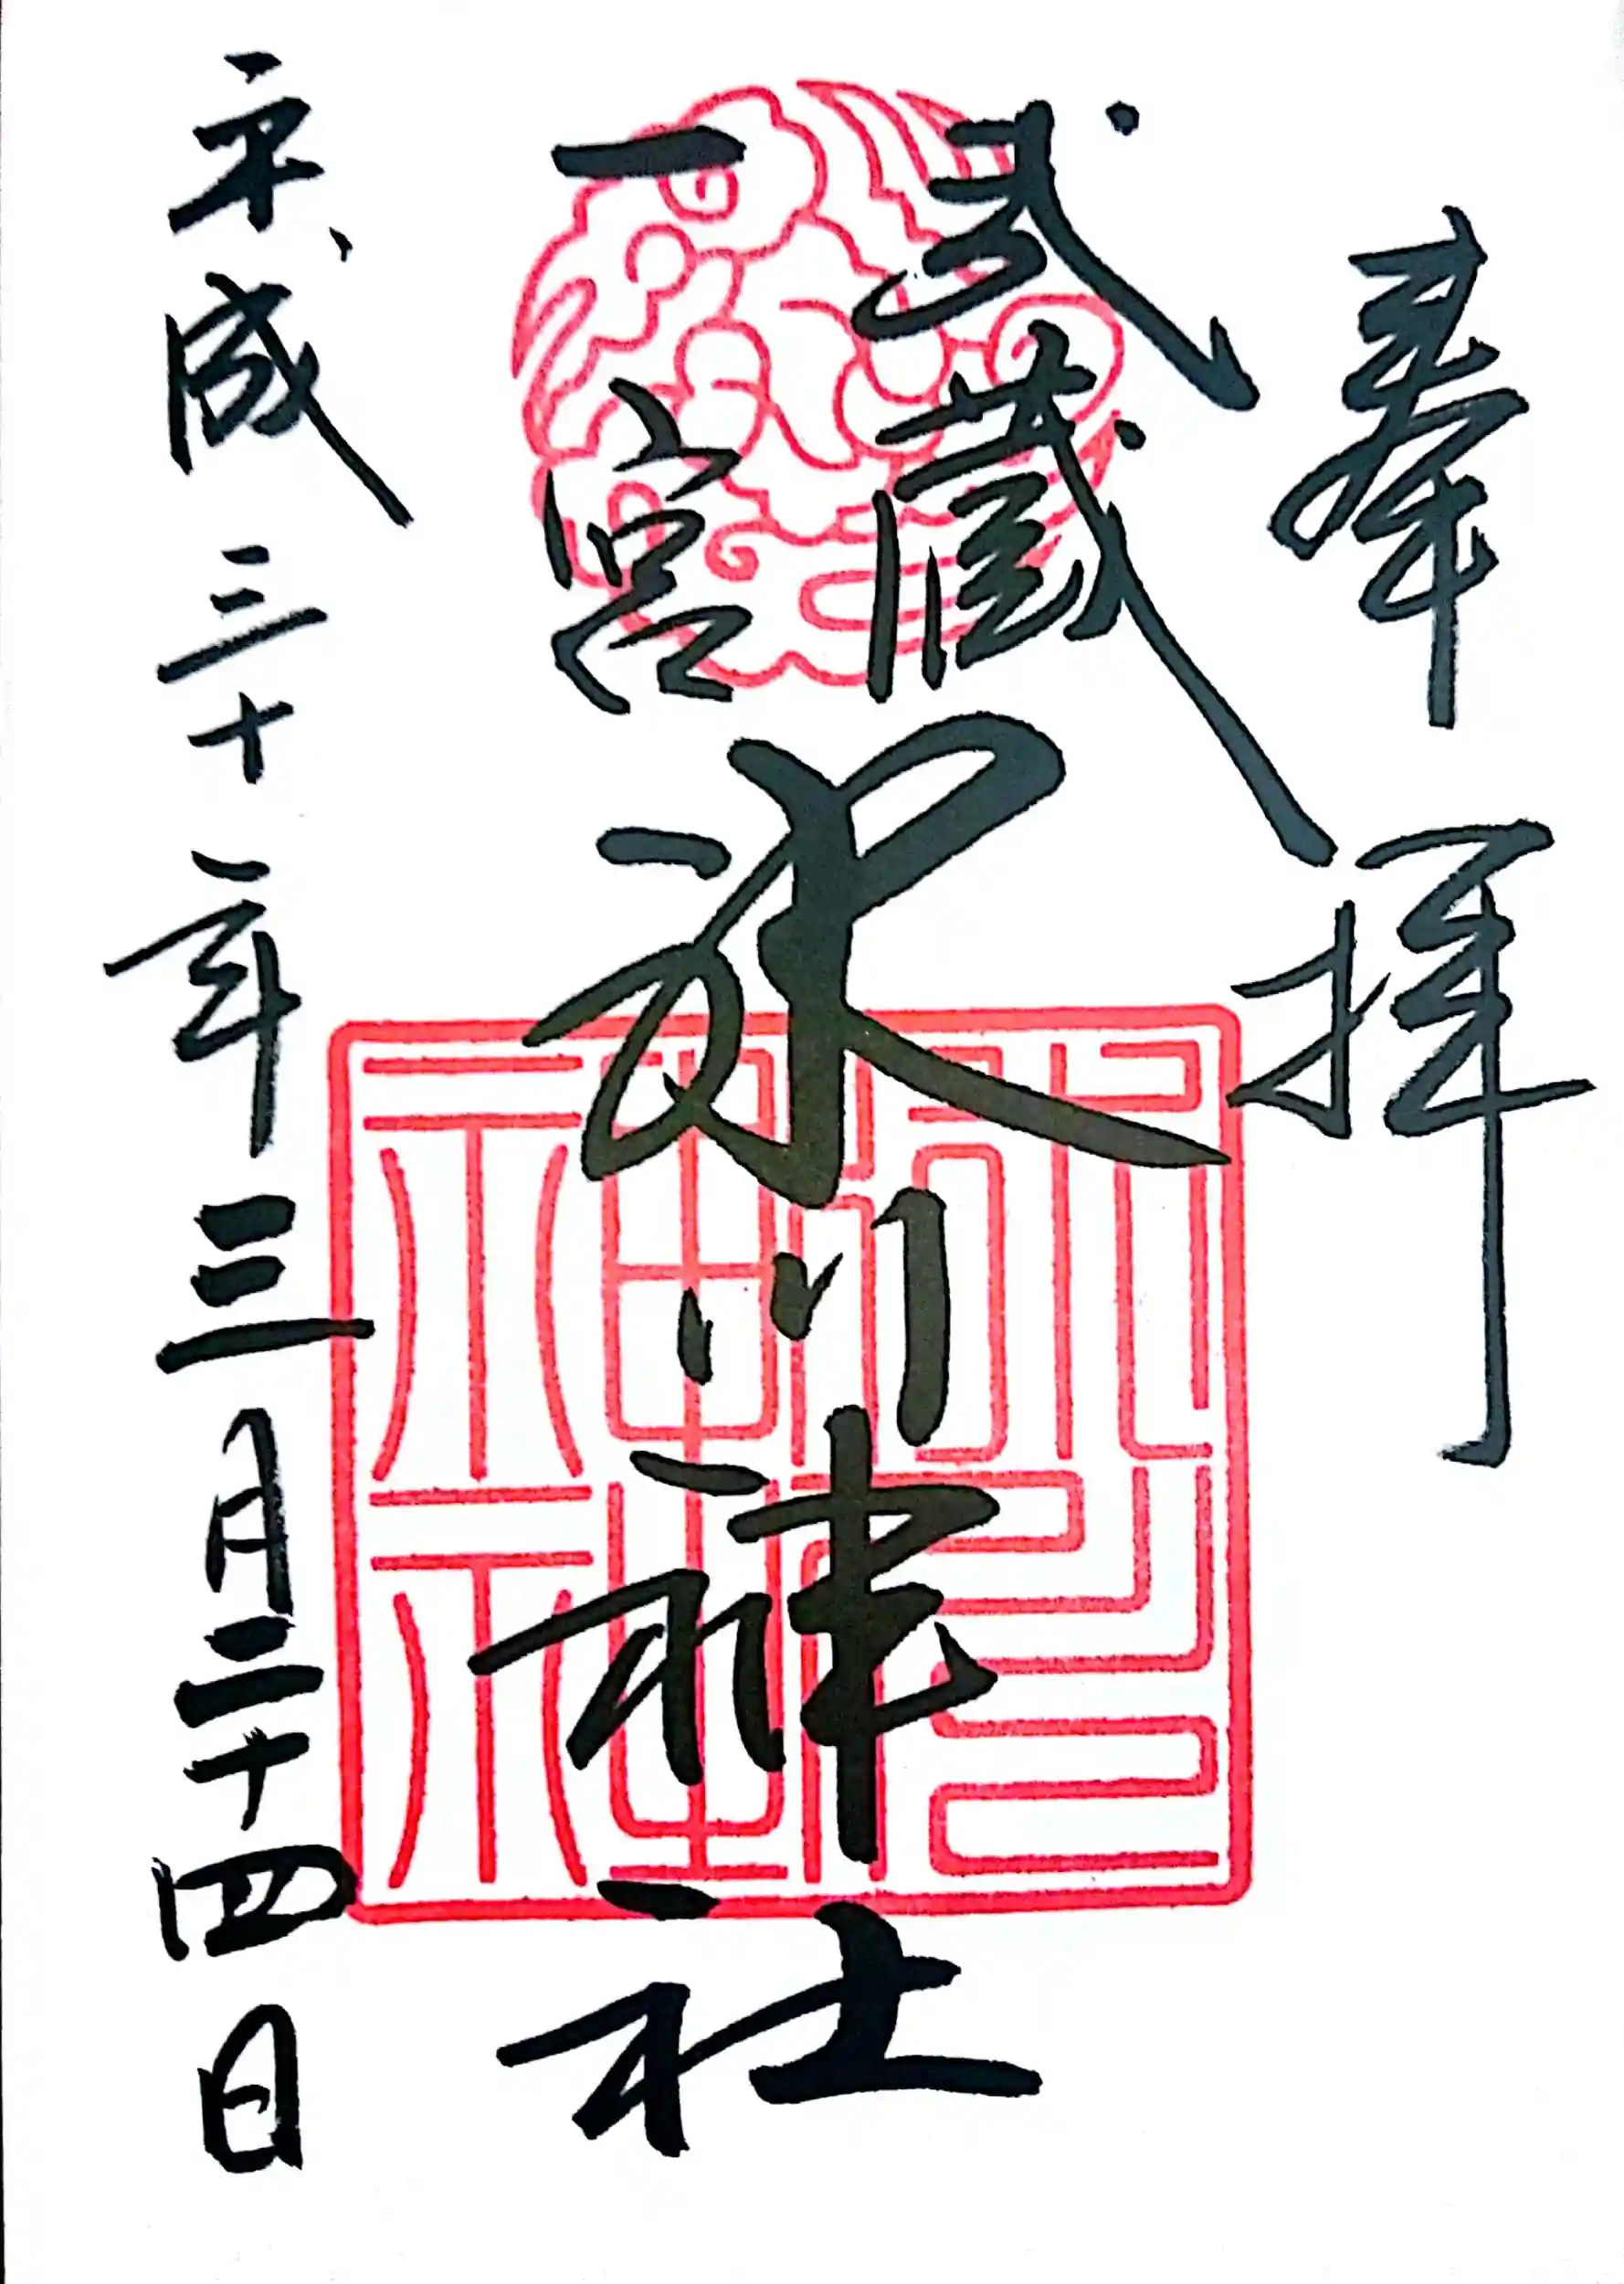 奉拝
武蔵
一宮
氷川神社
氷川神社
平成三十一年三月二十四日